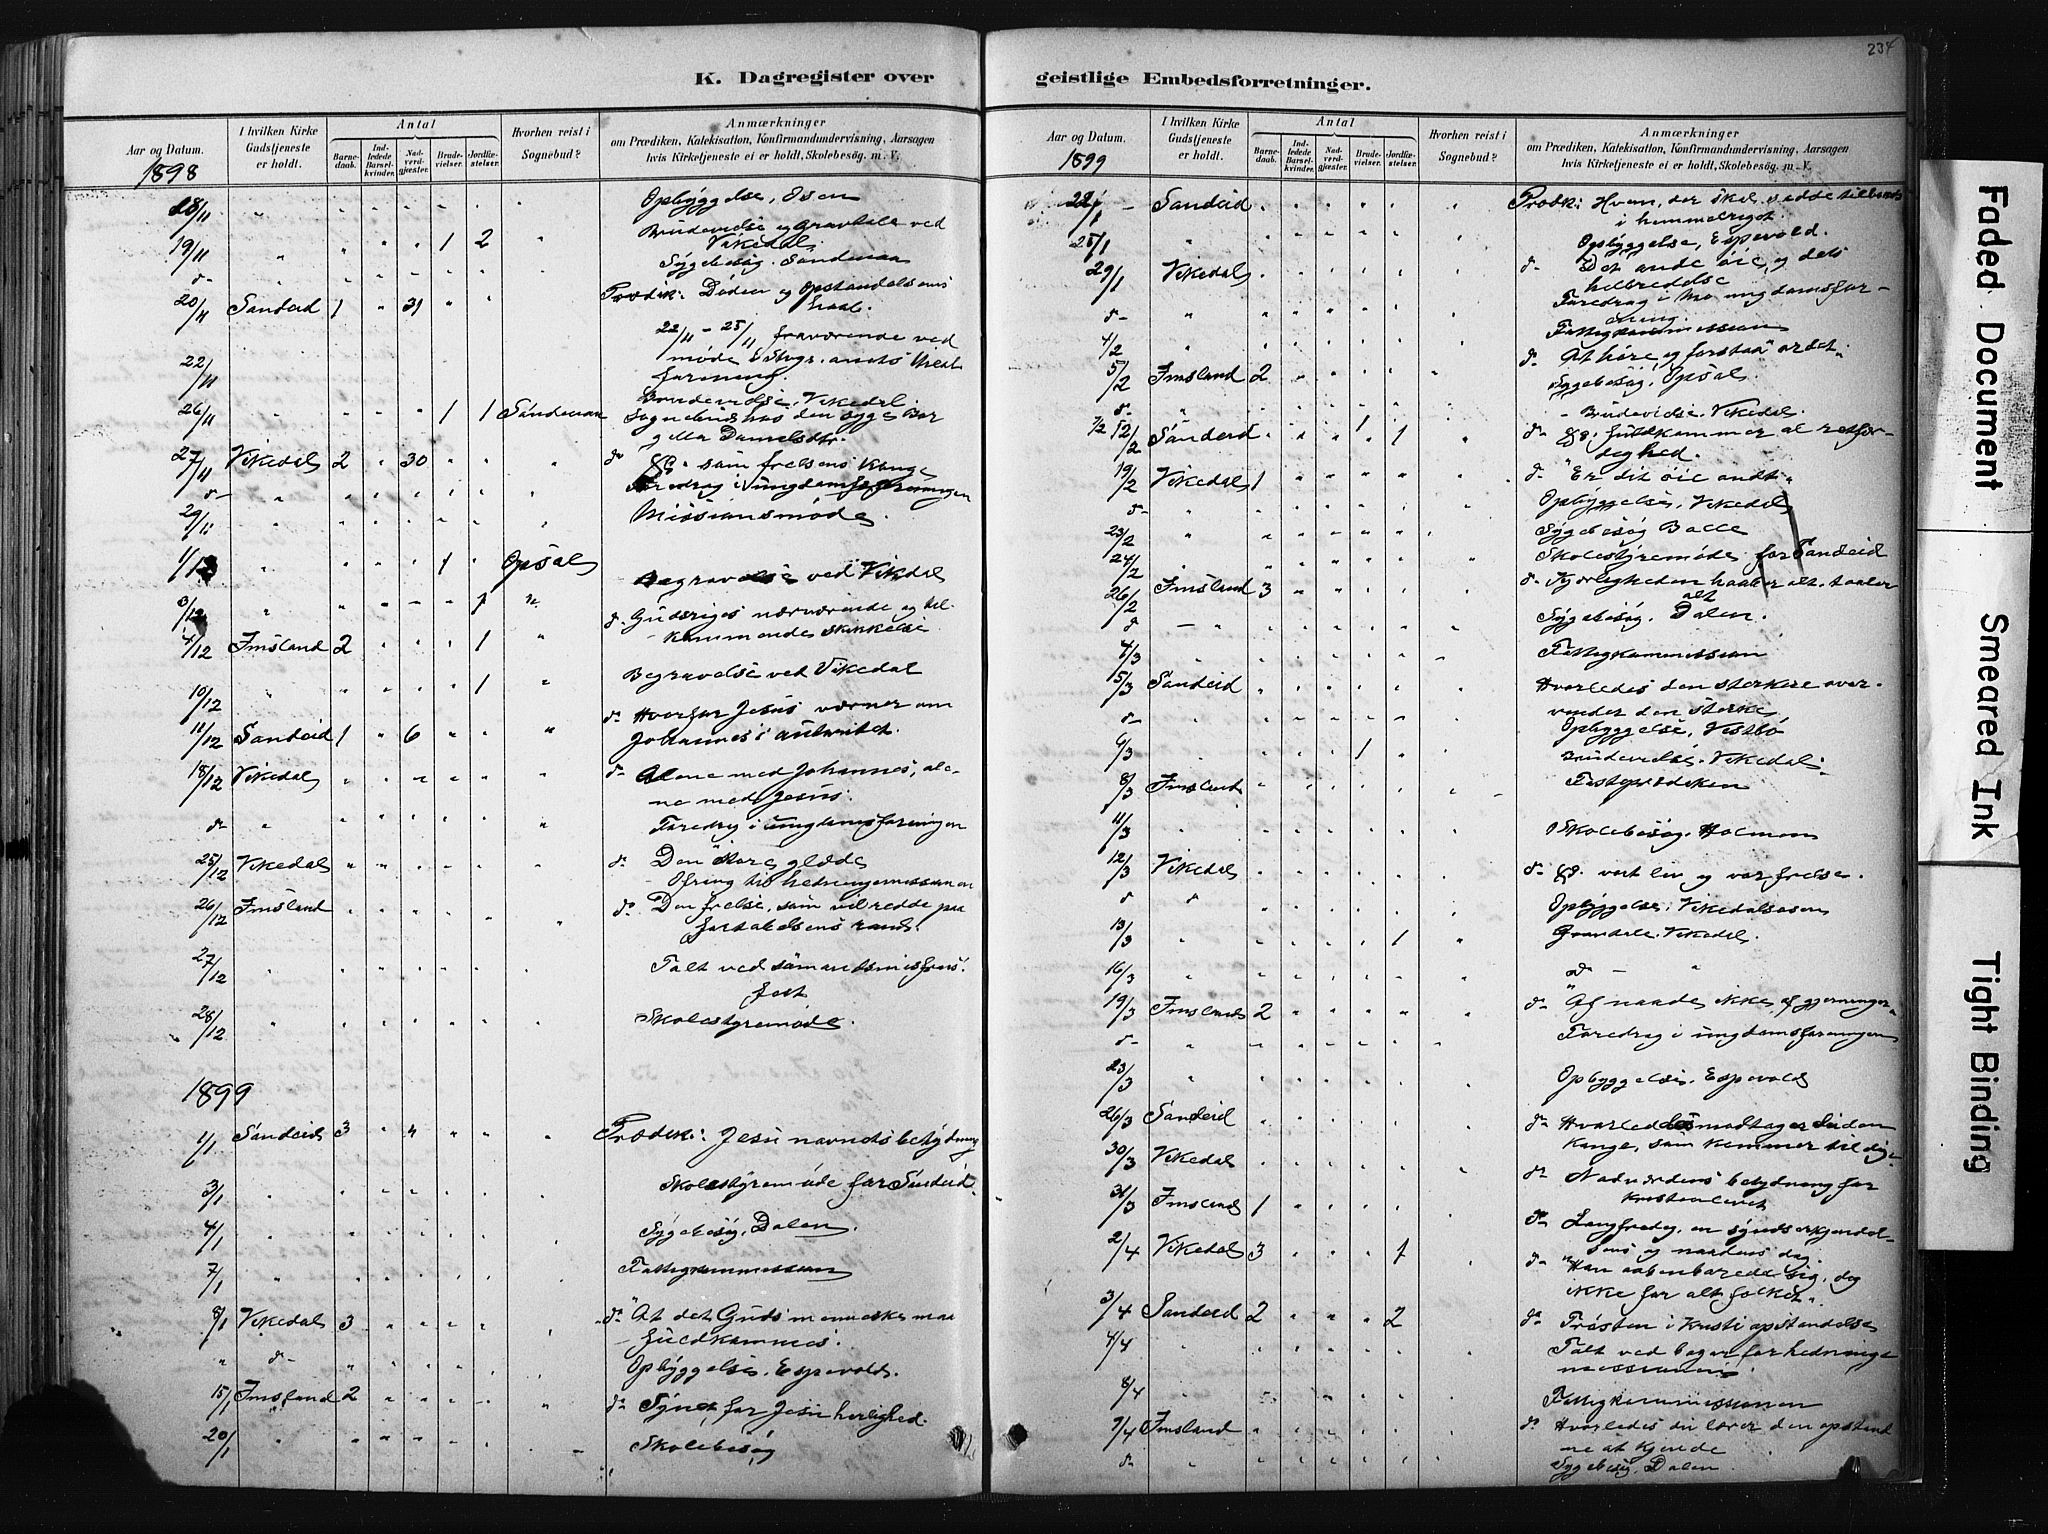 234
K. Dagregister over
Aar og Datum.
1898
I hvilken Kirke
Gudstjeneste
er holdt.
Antal
Barne-
daab.
Ind-
ledede
Barsel-
kvinder.
Nad-
verd-
gjæster.
Brude-
vielser.
Jordfæ-
stelser.
Hvorhen reist i
Sognebud?
Anmærkninger
om Prædiken, Katekisation, Konfirmandundervisning, Aarsagen
hvis Kirketjeneste ei er holdt, Skolebesög. m. V.
18/11 Opbyggelse, Osen
19/11 1 2 Brudevielse og Gravtale ved
Vikedal
Sygebesøg. Søndenaa
20/11 Sandeid 1 31 Prædik: Døden og Opstandelsens
22/11 22/11 - 25/11 fraværende ved
møde
26/11 1 1 Søndenaa Brudevielse, Vikedal
27/11 Vikedal 2 30 som frelsens Konge
Foredrag i ungdomsforeningen
29/11 Missionsmøde.
1 Opsal
3/12 1 Begravelse ved Vikedal
4/12 Imsland 2 1 Gudsriges nærværende og til-
kommende skikkelse
10/12 1 Begravelse ved Vikedal
11/12 Sandeid 1 6 Hvorfor Jesus værner om
Johannes's autoritet.
18/12 Vikedal Alene med Johannes, ale-
ne med Jesus.
Foredrag i ungdomsforeningen
25/12 Vikedal Den store glæde
Ofring til hedningemissionen
26/12 Imsland Den frelse, som vil redde paa
fortabelsens rand.
27/12 Talt ved sømandsmisjons-
fest
28/12 Skolestyremøde.
1899
1/1 Sandeid 3 Prædik: Jesu navns betydning
3/1 Skolestyremøde for Sandeid.
4/1 Sygebesøg, Dalen.
7/1 Fattigkommission
8/1 Vikedal 3 "At det Guds menneske maa
fuldkommes.
Opbyggelse. Espevold.
15/1 Imsland 2 Synet for Jesu herlighed.
20/1 Skolebesøg
geistlige Embedsforretninger.
Aar og Datum.
1899
I hvilken Kirke
Gudstjeneste
er holdt.
Antal
Barne-
daab.
Ind-
ledede
Barsel-
kvinder.
Nad-
verd-
gjæster.
Brude-
vielser.
Jordfæ-
stelser.
Hvorhen reist i
Sognebud?
Anmærkninger
om Prædiken, Katekisation, Konfirmandundervisning, Aarsagen
hvis Kirketjeneste ei er holdt, Skolebesög. m. V.
22/1 Sandeid Prædik: Hvem, der skal sidde tilbords
i himmeriget.
25/1 Opbyggelse, Espevold.
29/1 Vikedal Det onde øie, og dets
helbredelse
Foredrag i ungdomsfor-
ening.
4/2 Fattigkommission
5/2 Imsland 2 At høre og forstaa ordet
Sygebesøg, Opsal.
1 Brudevielse. Vikedal.
12/2 Sandeid 1
19/2 Vikedal 1 "Er dit øie ondt"
Opbyggelse, Vikedal
23/2 Sygebesøg
24/2 Skolestyremøde for Sandeid
26/2 Imsland 3 Kjærligheden haaber alt, taaler
alt
Sygebesøg. Dalen.
4/3 Fattigkommission
5/3 Sandeid Hvorledes den sterkere over-
vinder den sterke
Opbyggelse, Vestbø
6/3 1 Brudevielse. Vikedal.
8/3 Imsland Fasteprædiken
11/3 Skolebesøg.
12/3 Vikedal vort liv og vor frelse.
Opbyggelse. Vikedalsosen
13/3 1 Gravtale. Vikedal.
16/3
19/3 Imsland 2 "Af naade, ikke af gjerninger"
Foredrag i ungdomsforeningen
23/3 Opbyggelse. Espevold
26/3 Sandeid Hvorledes modtager du den
Konge, som kommer til dig.
30/3 Vikedal Nadverdens betydning for
kristenlivet
31/3 Imsland 1 Langfredag, en synds erkjendel-
sens og naadens dag
2/4 Vikedal 3 1 "Han aabenbarede sig, dog
ikke for alt folket".
3/4 Sandeid 2 2 Trøsten i Kristi opstandelse
4/4 Talt ved for hedninge
missionen
8/4 Fattigkommissionen
9/4 Imsland Hvorledes du lærer den opstand-
ne at kjende
Sygebesøg. Dalen
Faded Document
Smeared Ink
Tight Binding